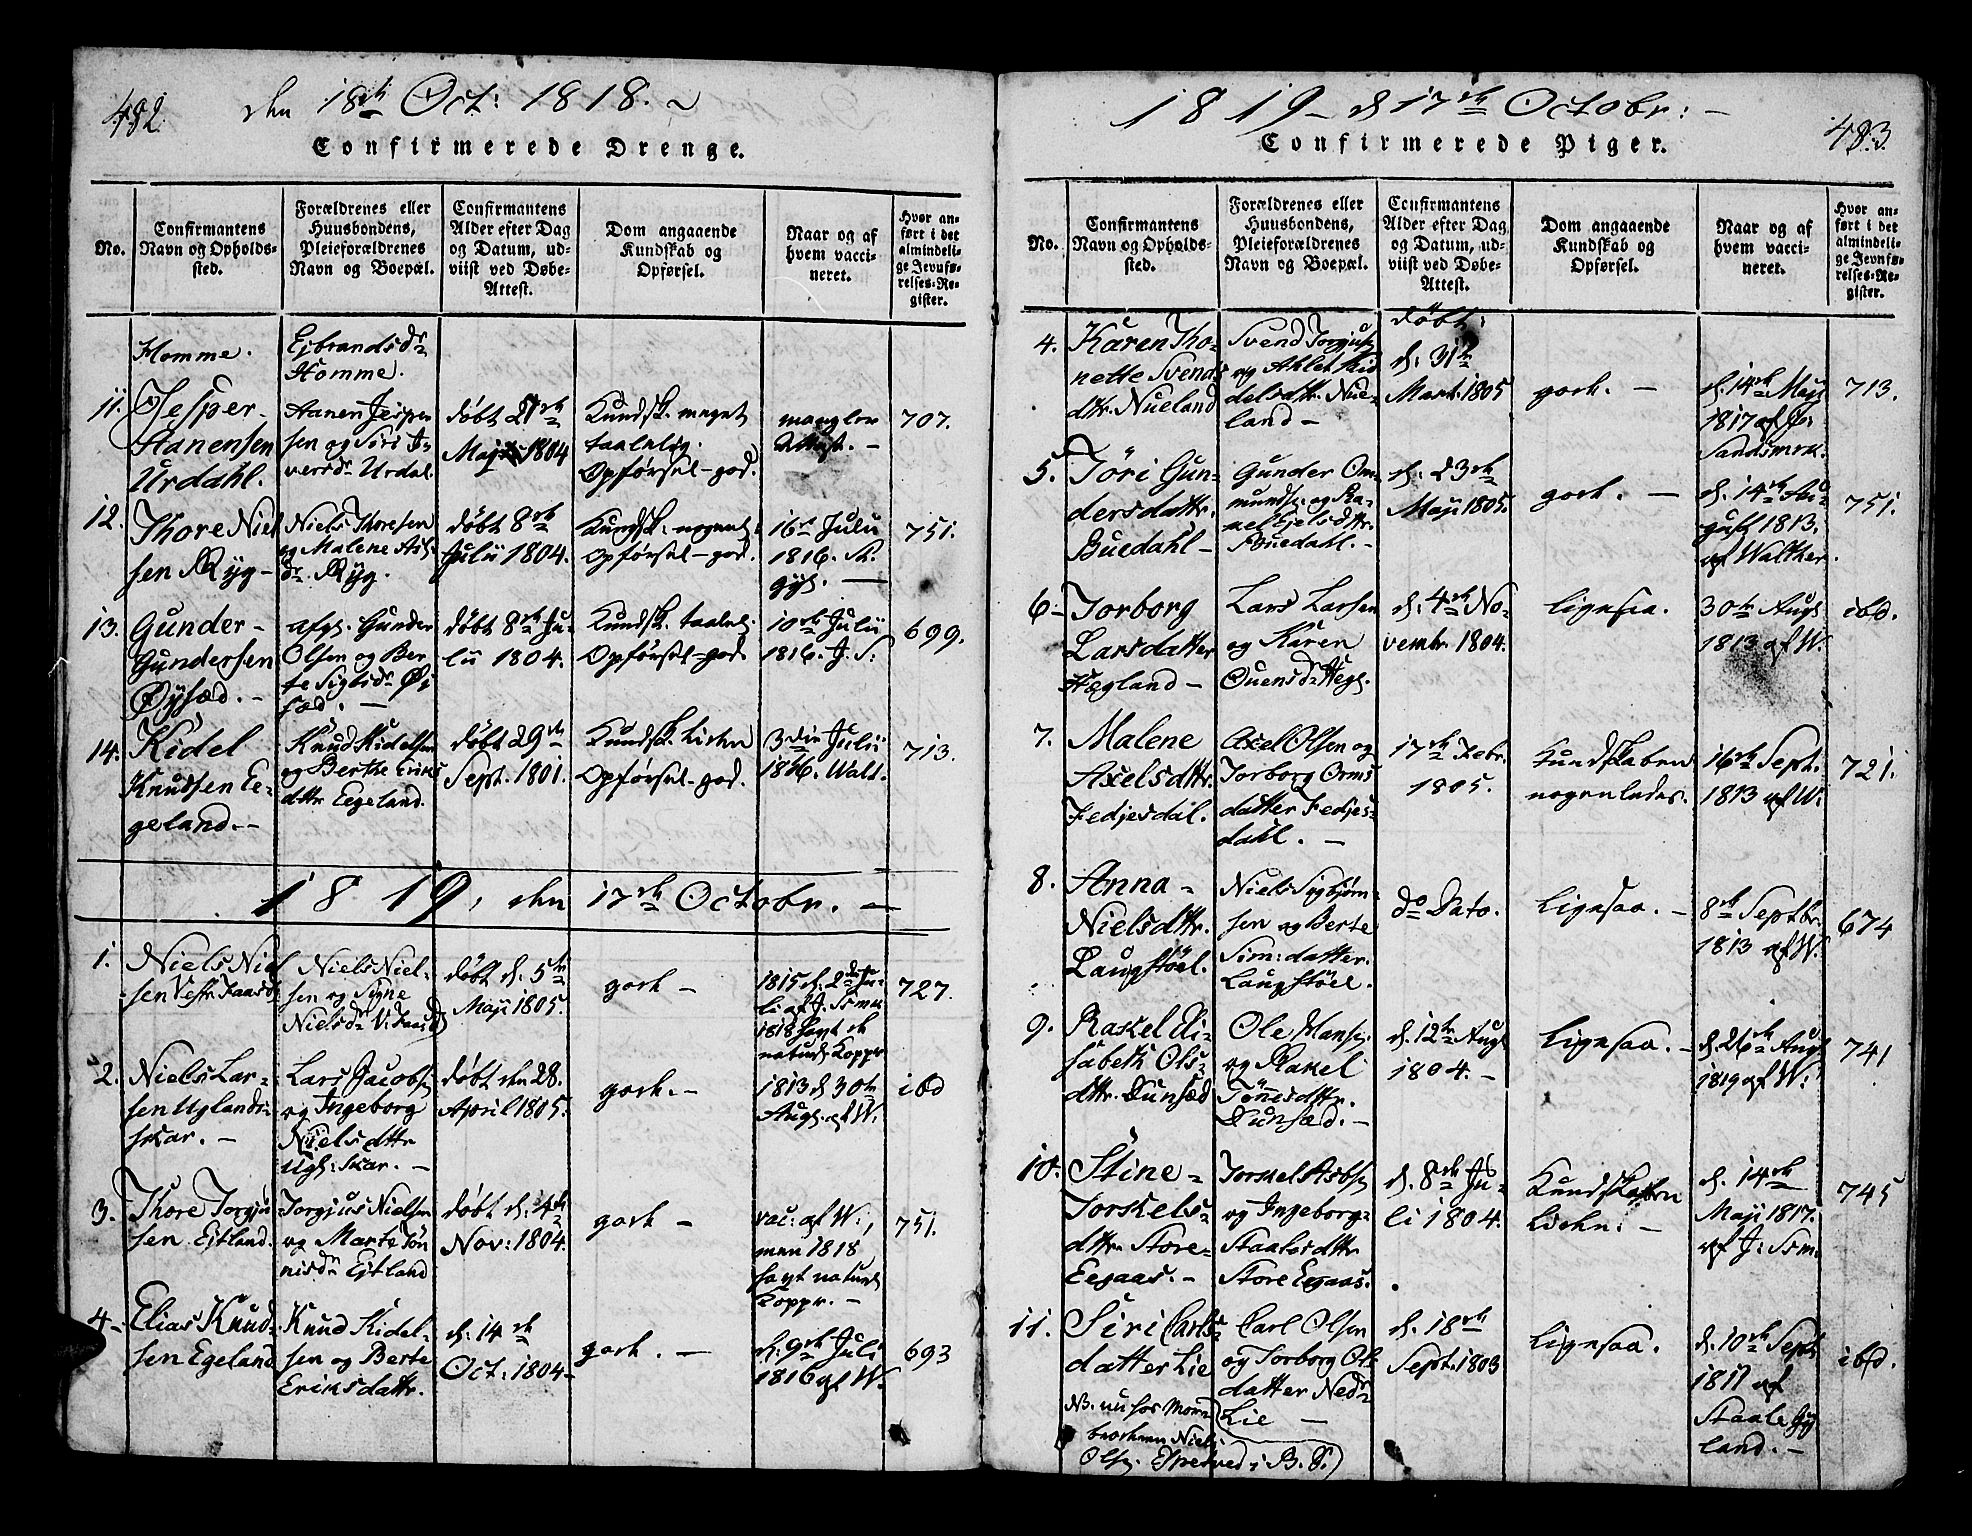 482.
den 18de Oct: 1818. ~
Confirmerede Drenge.
No.
Confirmantens
Navn og Opholds-
sted.
Forældrenes eller
Huusbondens,
Pleieforældrenes
Navn og Boepæl.
Confirmantens
Alder efter Dag
og Datum, ud-
viist ved Døbe-
Attest.
Dom angaaende
Kundskab og
Opførsel.
Naar og af
hvem vacci-
neret.
Hvor an-
ført i det
almindeli-
ge Jevnfø-
relses-Re-
gister.
Homme.
Ejbrandsdr
Homme.
11.
Jesper-
Aanensen
Urdahl.
Aanen Jesper
sen og Siri I-
versdr Urdal.
døbt 21de
Maji 1804
Kundsk. meget
taalelig.
Opførsel-god.
mangler
Attest. -
707.
12.
Thore Niel
sen Ryg-
Niels Thoresen
og Malene Asl:
dr. Ryg.
døbt 8de
Julii 1804.
Kundsk. nogenl:
Opførsel-god.
16de Julii
1816.
751.
13.
Gunder-
Gundersen
Øysæd. -
afg. Gunder
Olsen og Ber
te Siglidr Øj
sæd. -
døbt 8de Ju-
lii 1804.
Kundsk. taalel:
Opførsel-god
10de Julii
1816. J. S:
699.
14.
Kidel
Knudsen Ee-
geland.-
Knud Kidelsen
og Berthe Eriks
dttr Eegeland.
døbt 29de
Sept. 1801.
Kundsk. liden
Opførsel-god.
3die Julii
1816. Walt.
713.
1819, den 17de Octobr. -
1.
Niels Niel
sen Vestr. Faaedr
Niels Niel-
sen og Signe
Nielsdr
døbt d: 5te
Maji 1805.
godt -
1815 d. 2den Ju-
li af J. Ssmrk
1818 havt de
naturl. Kopper
727.
2.
Niels Lar-
sen Uglands-
skar. -
Lars Jacobs.
og Ingeborg
Nielsdttr
Ugl: skar. -
døbt den 28.
April 1805.
godt. -
1813 d. 30te
Aug. af W.
ibd
3.
Thore Torgju
sen Ejtland.
Torgjus Nielsen
og Marte Tøn
nisdr Ejtland
døbt d: 4de
Nov: 1804.
godt -
vac: af W.,
men 1818
havt naturl.
Kopper. -
751.
4-
Elias Knud-
sen Egeland
Knud Kidel-
sen og Berte
Eriksdattr.
d: 14de
Oct. 1804-
godt. -
d: 9de Juli
1816 af W.
693
1819- d 17de Octobr: -
483.
Confirmerede Piger.
No.
Confirmantens
Navn og Opholds-
sted.
Forældrenes eller
Huusbondens,
Pleieforældrenes
Navn og Boepæl.
Confirmantens
Alder efter Dag
og Datum, ud-
viist ved Døbe-
Attest.
Dom angaaende
Kundskab og
Opførsel.
Naar og af
hvem vacci-
neret.
Hvor an-
ført i det
almindeli-
ge Jevnfø-
relses-Re-
gister.
4.
Karen Tho-
nette Svends
dtr. Nueland
Svend Torgjus.
og Ahlet Kid
delsdttr. Nue-
land -
døbt:
d: 31te
Mart. 1805
godt. -
d. 14de Maji
1817 af J.
Sandsmrk.
713.
5.
Töri Gun-
dersdattr.
Buedahl -
Gunder Om-
munds. og Ra-
nel Ejelsdttr.
Buedahl. -
d: 23de
Maji 1805.
godt. -
d. 14de Au-
gust 1813.
af Walther.
751.
6-
Torborg
Larsdatter
Hægland -
Lars Larsen
og Karen
Ouensdr Hegl.
d: 4de No-
vembr 1804.
ligesaa.
30te Aug.
1813 af W.
ibd.
7.
Malene
Axelsdttr.
Fedjesdal.
Axel Olsen og
Torborg Orms
datter Fedjes-
dahl. -
17de Febr.
1805.
Kundskaben
nogenledes.
16de Sept.
1813 af W.
721.
8.
Anna -
Nielsdttr.
Laugstöel.
Niels Sigbjørn-
sen og Berte
Sim: datter.
Laugstöel.
do Dato.
Ligesaa. -
8de Septbr.
1813 af W.
674
9.
Rakel Eli-
sabeth Ols-
dttr. Dunsæd
Ole Hans.
og Rakel
Tönesdttr.
Dunsæd. -
d. 12te Aug.
1804. -
Ligesaa. -
d. 26de Aug.
1819 af W.
741
10.
Stine -
Torkels-
dttr. Store-
Eegaas. -
Torkel Asbs.
og Ingeborg
Staalesdttr
Store Eegaas.
d. 8de Ju-
li 1804.
Kundskaben
liden: -
d. 14de
Maji 1817.
af J: Ssm.
745
11.
Siri Carls-
datter Lie
NB. nu hos Mor-
broderen Niels
Ols. Espetved i B. S.)
Carl Olsen
og Torborg Ols
datter Nedr
Lie -
d. 18de
Sept. 1803
Ligesaa.
d. 10de Sept.
1817 af
Staale Gy
land. -
ibd.